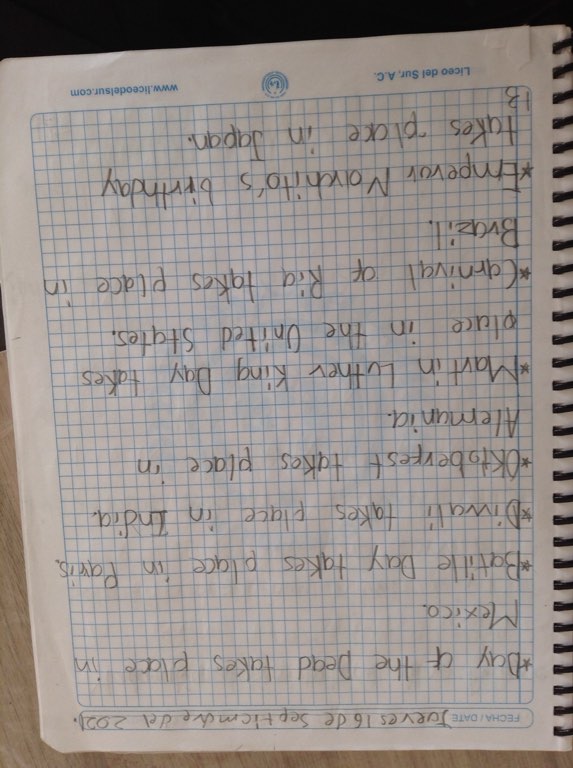 FECHA / DATE Jueves 16 de Septicmdre del 2021.
*Day of the Dead takes place in
Mexico.
*Batille Day takes place in Paris.
*Diwali takes place in India.
*Oktoberfest takes place in
Alemania.
*Martin Luther King Day takes
place in the United States.
*Carnival of Ria takes place in
Brazil.
*Emperor Narchito's birthday
takes place in Japan.
1B
Liceo del Sur, A.C. www.liceodelsur.com